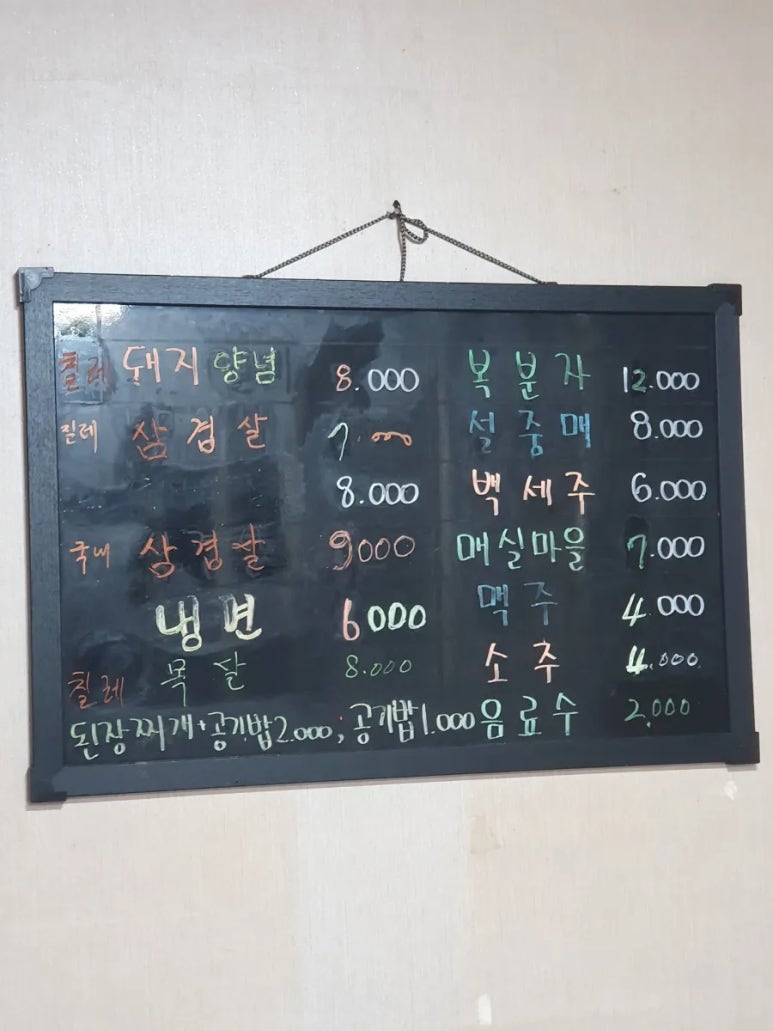 칠레 돼지양념 8.000
칠레 삼겹살 7.000
8.000
국내 삼겹살 9000
냉면 6000
칠레 목살 8.000
된장찌개+공기밥2.000; 공기밥1.000
복분자 12.000
설중매 8.000
백세주 6.000
매실마을 7.000
맥주 4.000
소주 4.000
음료수 2.000